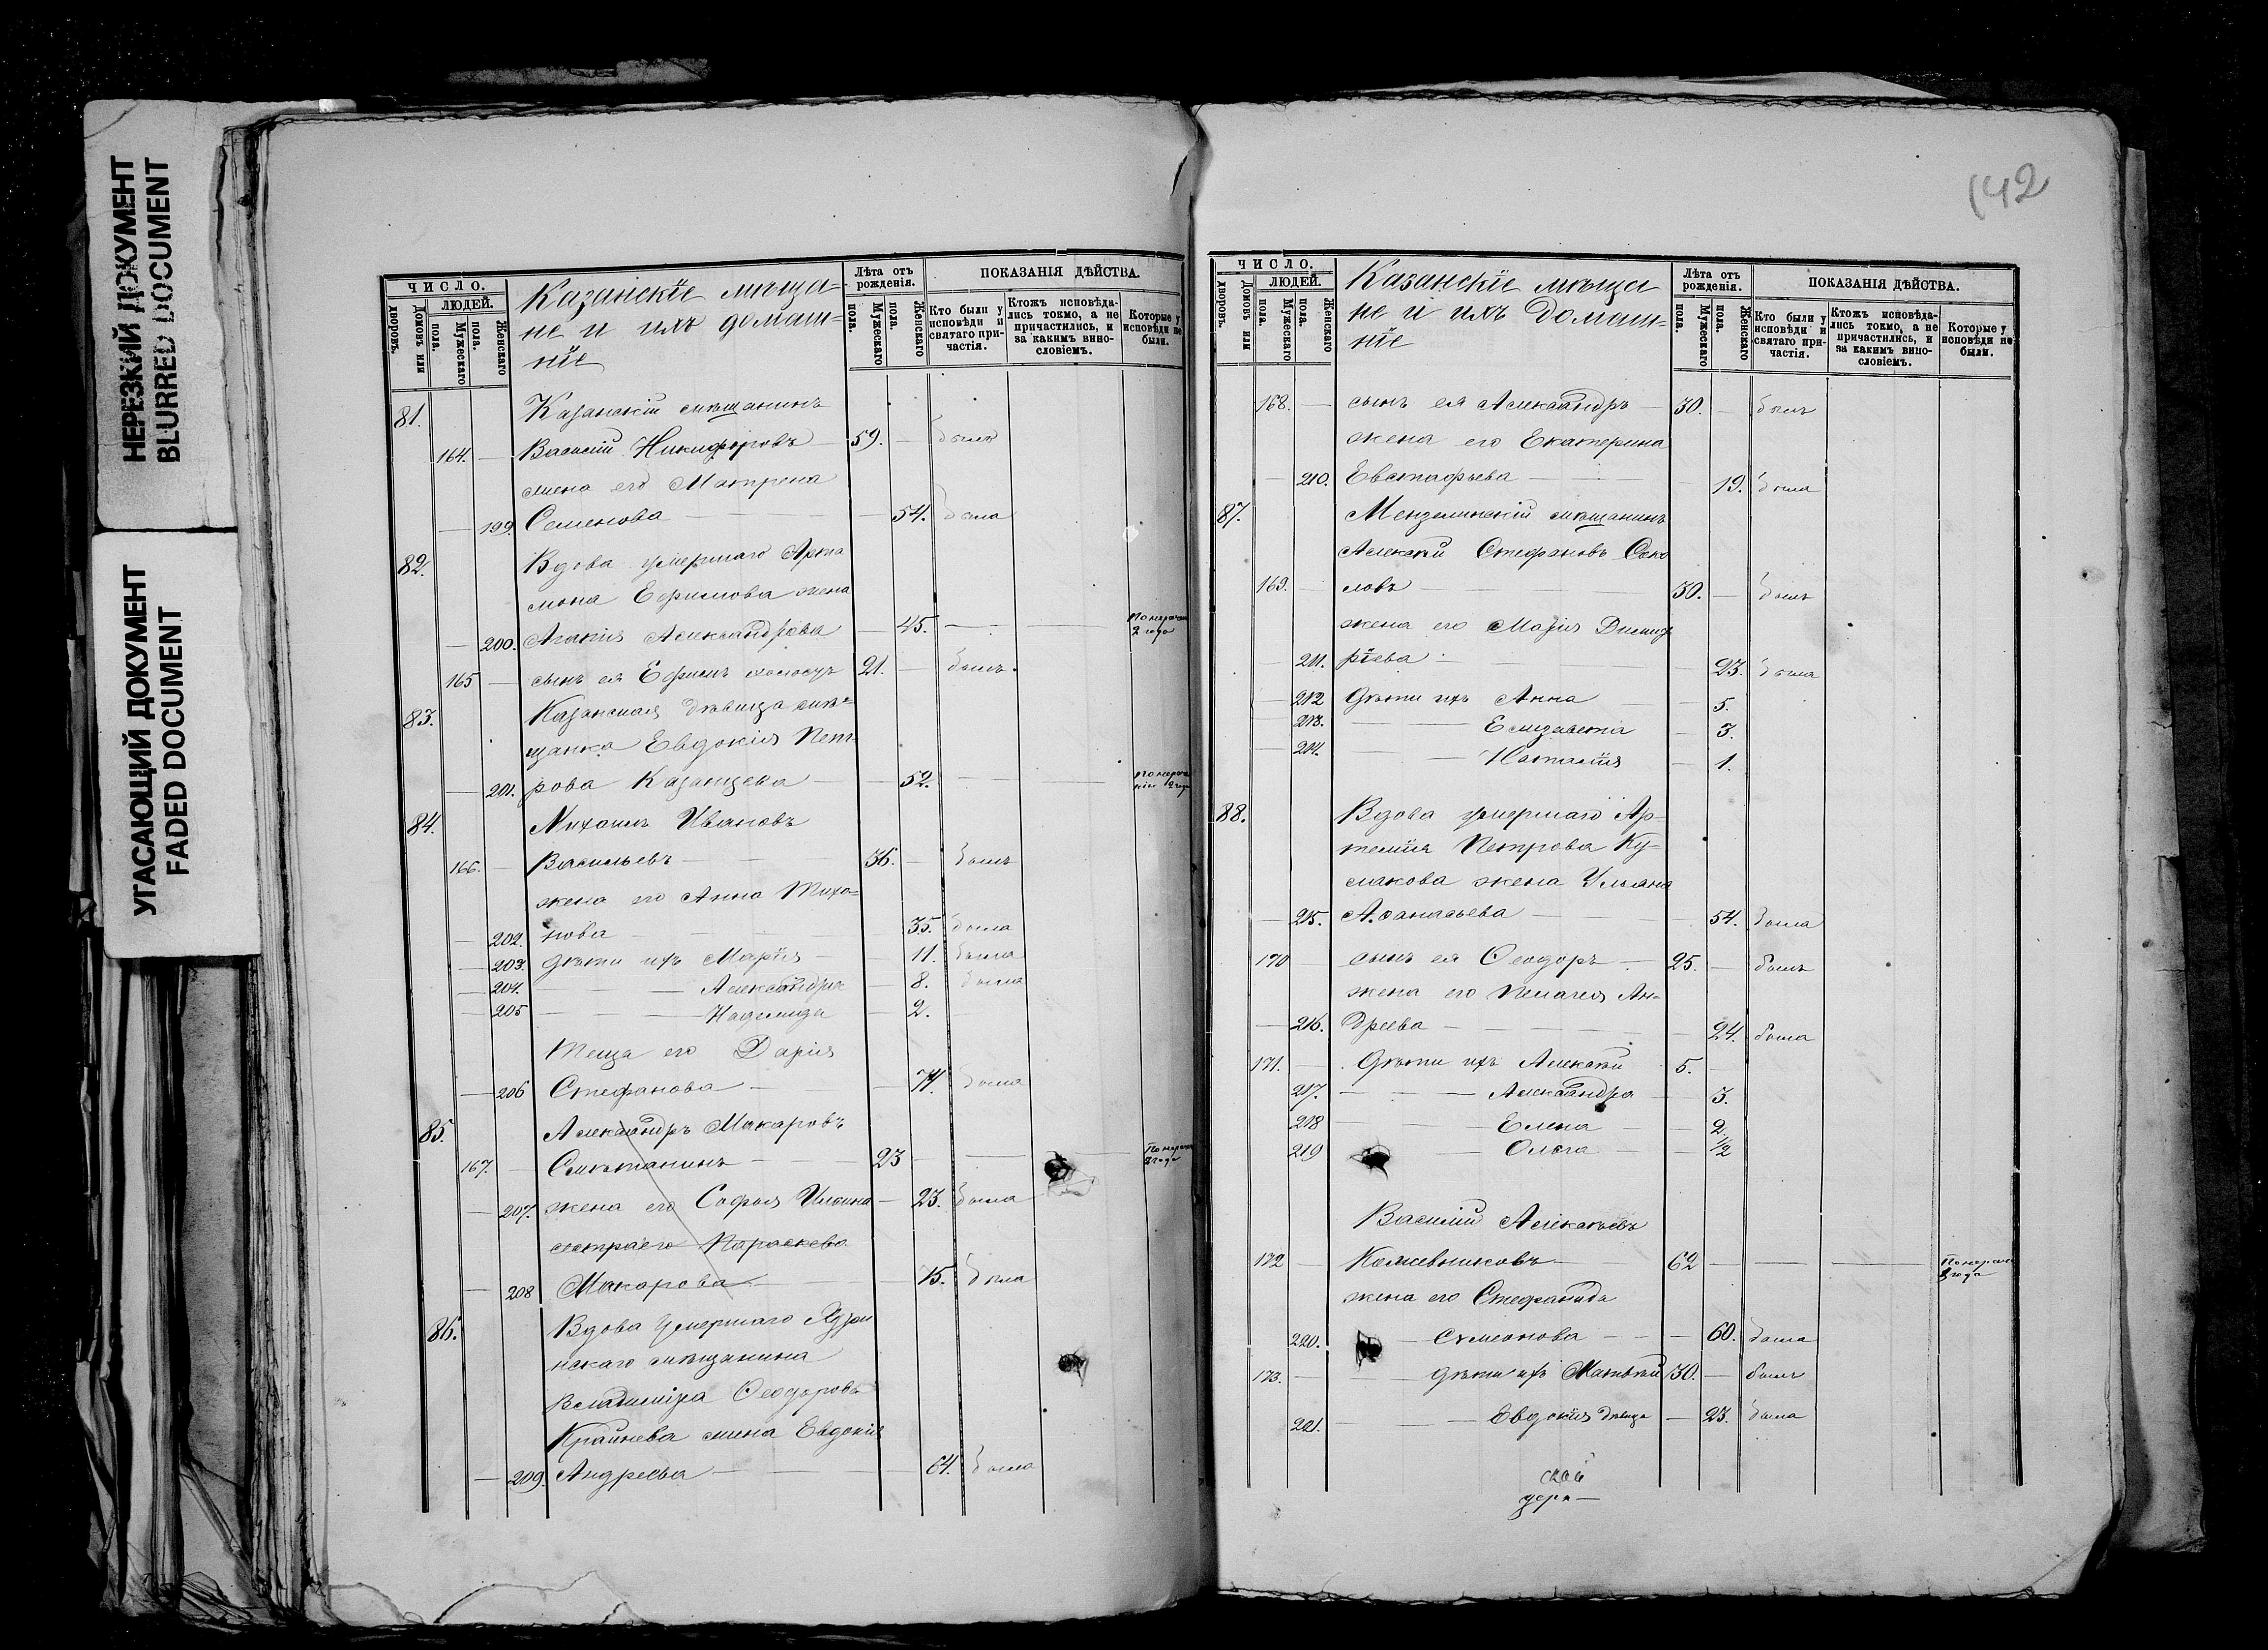 НЕРЕЗКИЙ ДОКУМЕНТ
BLURRED DOCUMENT
УГАСАЮЩИЙ ДОКУМЕНТ
FADED DOCUMENT
ЧИСЛО.
ЛЮДЕЙ.
Домовъ или дворовъ.
Мужескаго пола.
Женскаго пола.
Казанскіе мѣща-
не и ихъ домаш-
ніе
Лѣта отъ рожденія.
Мужескаго пола.
Женскаго пола.
ПОКАЗАНІЯ ДѢЙСТВА.
Кто были у исповѣди и святаго при-частія.
Ктожъ исповѣда-лись токмо, а не причастились, и за какимъ вино-словіемъ.
Которые у исповѣди не были.
81. Казанскій мѣщанинъ
164. Василій Никифоровъ 59. былъ
жена его Матрена
199. Семенова 54. была
82. Вдова умершаго Арта
мона Ефимова жена
200. Агапія Александрова 45. 2 года
165 сынъ ея Ефимъ холостъ 21. былъ
83. Казанская дѣвица мѣ-
щанка Евдокія Пет-
201. рова Казанцева 52.
84. Михаилъ Ивановъ
166. Васильевъ 36. былъ
жена его Анна Тихо-
202. нова 35. была
203. дѣти ихъ Марія 11. была
204. Александра 8. была
205 Надежда 2.
Теща его Дарія
206 Стефанова 74. была
85. Александръ Макаровъ
167. Смѣтанинъ 23 2 года
207. жена его Софья Ильина 23. была
сестра его Параскева
208 Макарова 15. была
86. Вдова умершаго
мѣщанина
Владиміра Ѳеодорова
Крайнева жена Евдокія
209. Андреева 64. была
142
ЧИСЛО.
ЛЮДЕЙ.
Домовъ или дворовъ.
Мужескаго пола.
Женскаго пола.
Казанскіе мѣща
не и ихъ домаш-
ніе
Лѣта отъ рожденія.
Мужескаго пола.
Женскаго пола.
ПОКАЗАНІЯ ДѢЙСТВА.
Кто были у исповѣди и святаго при-частія.
Ктожъ исповѣда-лись токмо, а не причастились, и за какимъ вино-словіемъ.
Которые у исповѣди не были.
168. сынъ ея Александръ 30. былъ
жена его Екатерина
210. Евстафьева 19. была
87. Мензелинскій мѣщанинъ
Алексѣй Стефановъ Соко
169. ловъ 30. былъ
жена его Марія Димит
211. ріева 23. была
212 дѣти ихъ Анна 5.
213. Елизавета 3.
214. Наталія 1.
88. Вдова умершаго Ар-
темія Петрова Ку-
макова жена Ульяна
215. Аѳанасьева 54. была
170 сынъ ея Ѳеодоръ 25. былъ
жена его Пелагея Ан-
216. дреева 24. была
171. дѣти ихъ Алексѣй 5.
217. Александра 3.
218 Елена 2.
219 Ольга 1/2
Василій Алексѣевъ
172 Кожевниковъ 62 года
жена его Стефанида
220. Симеонова 60. была
173. дѣти ихъ Матвѣй 30. былъ
221. Евдокія дѣвица 23. была